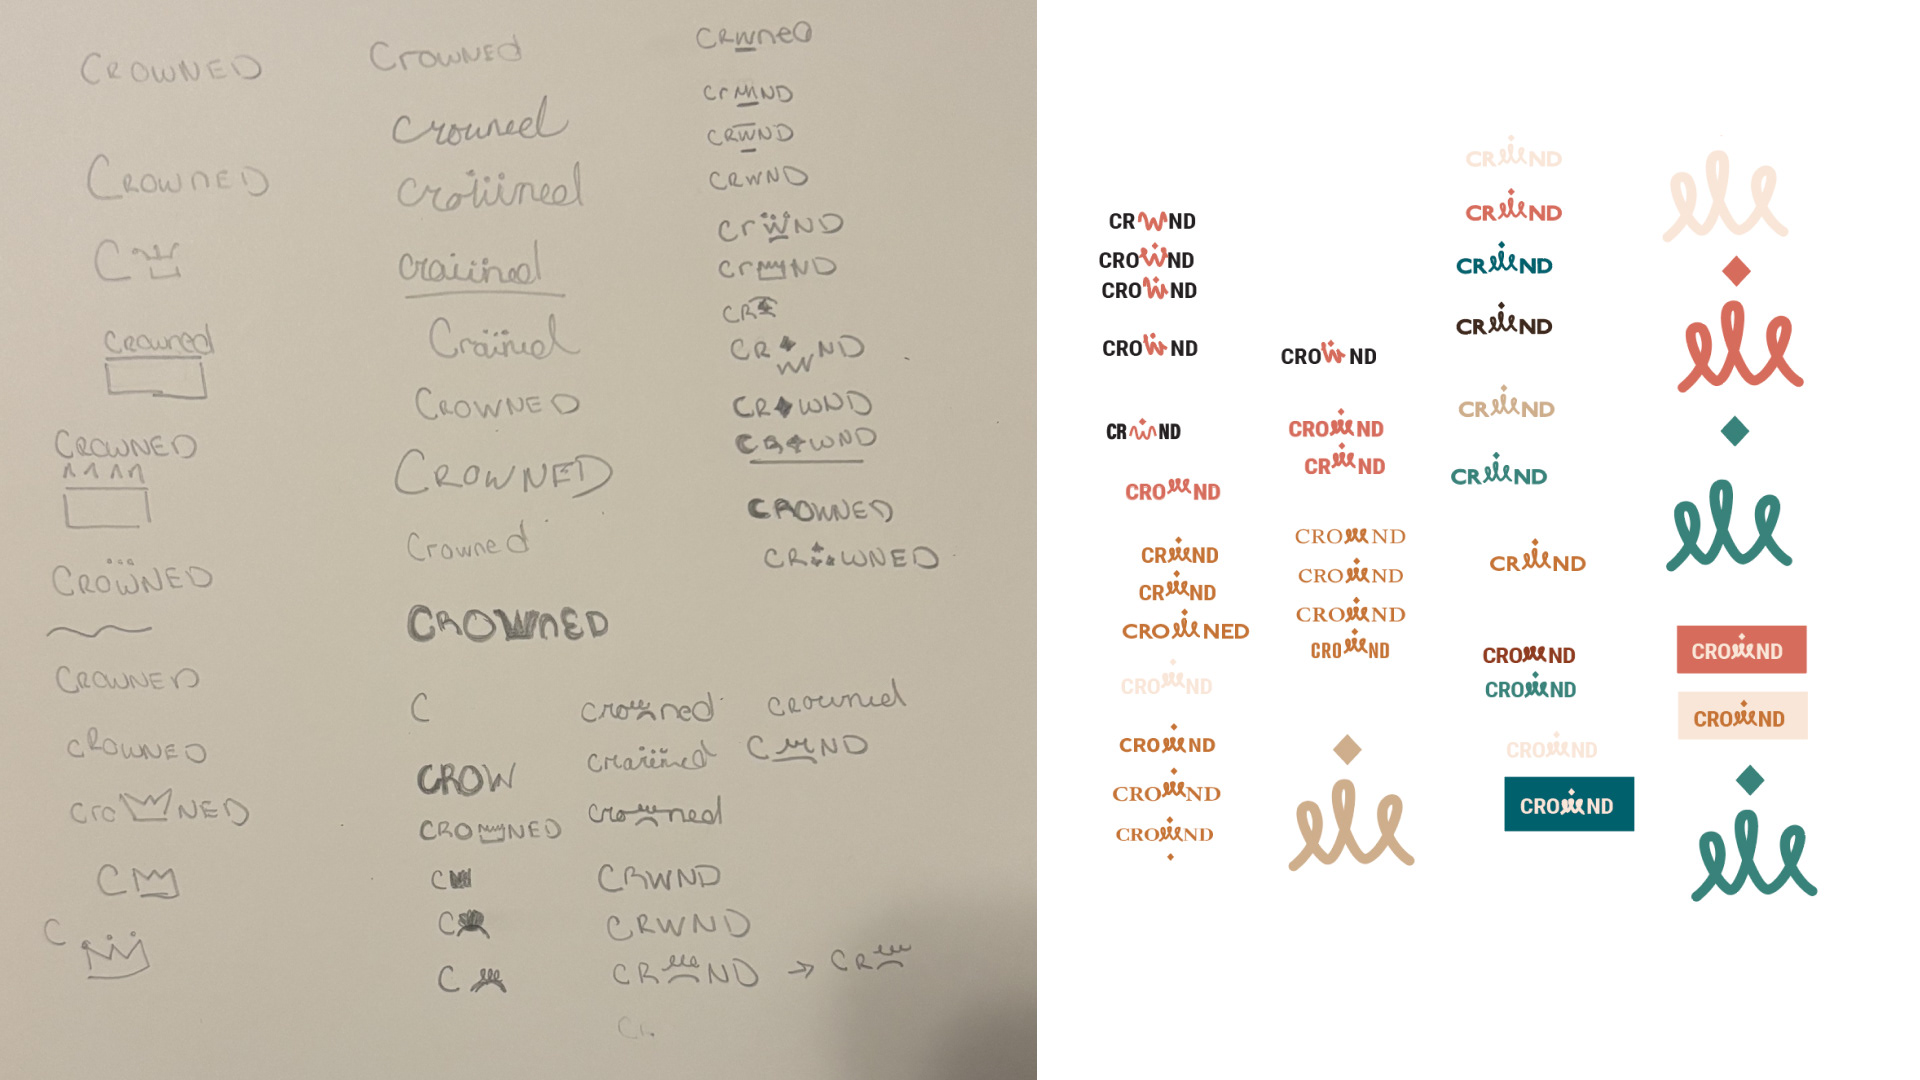 CROWNED
CROWNED
C
crowned
CROWNED
CROWNED
CROWNED
CROWNED
CroWNED
C
C
Crowned
crowned
crowned
crowned
Crowned
CROWNED
CROWNED
Crowned
CROWNED
C
CROW
CROWNED
C
C
C
crowned
crowned
crowned
CRWND
CRWND
CRWND → CRW
crowned
CWND
CRWned
CrWND
CRWND
CRWND
CrWND
CrWND
CR
CRWND
CROWND
CROWND
CROWNED
CROWNED
CRWND
CROWND
CROWND
CROWND
CRWND
CROWND
CRWND
CRWND
CROWNED
CROWND
CROWND
CROWND
CROWND
CROWND
CROWND
CRWND
CROWND
CROWND
CROWND
CROWND
CRWND
CRWND
CRWND
CRWND
CRWND
CRWND
CRWND
CROWND
CROWND
CROWND
CROWND
CROWND
CROWND